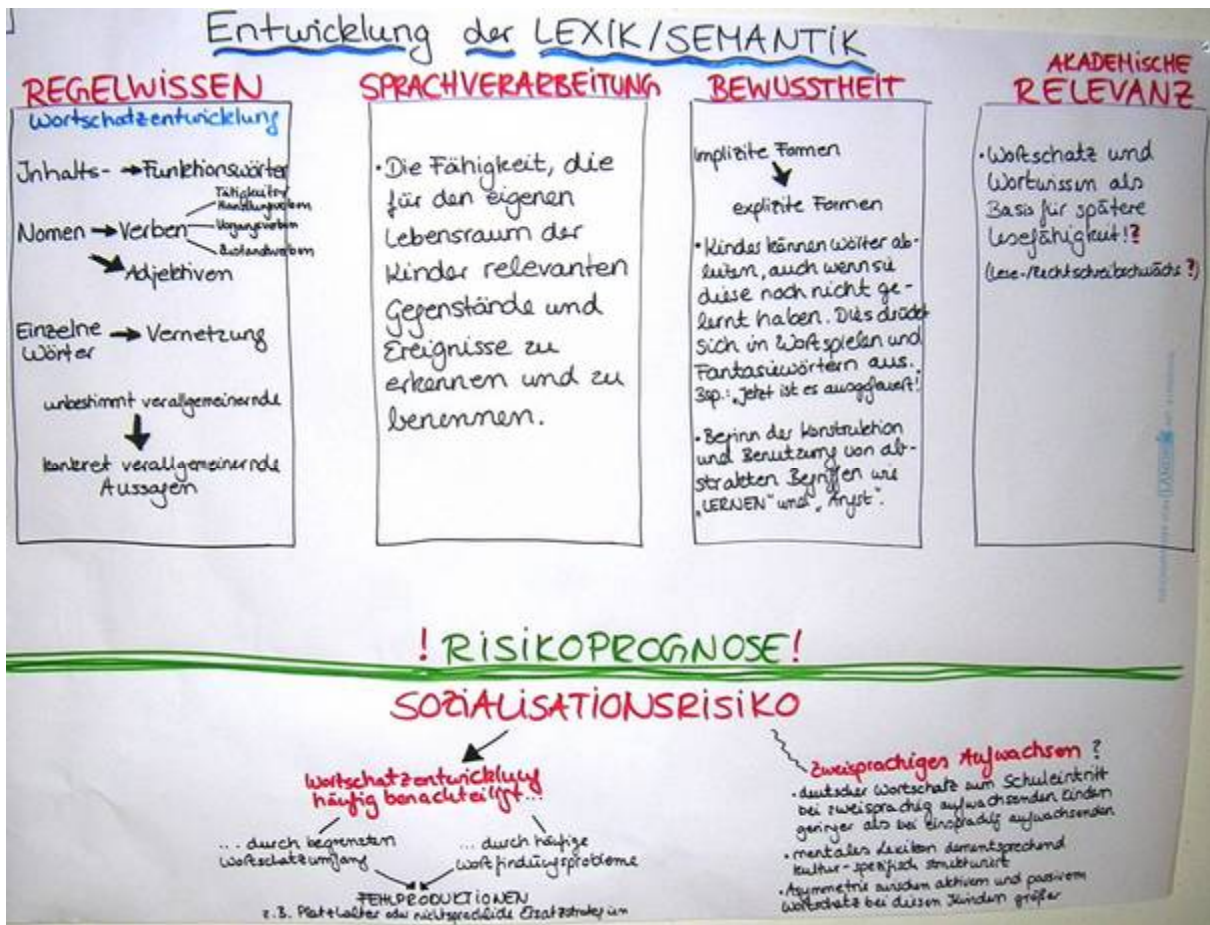 Entwicklung der LEXIK/SEMANTIK
REGELWISSEN
Wortschatzentwicklung
Inhalts- → Funktionswörter
Nomen → Verben
Tätigkeits-/
Handlungsverben
Vorgangsverben
Zustandsverben
Adjektiven
Einzelne → Vernetzung
Wörter
unbestimmt verallgemeinernde
konkret verallgemeinernde
Aussagen
SPRACHVERARBEITUNG
· Die Fähigkeit, die
für den eigenen
Lebensraum der
Kinder relevanten
Gegenstände und
Ereignisse zu
erkennen und zu
benennen.
BEWUSSTHEIT
Implizite Formen
explizite Formen
· Kinder können Wörter ab-
leiten, auch wenn sie
diese noch nicht ge-
lernt haben. Dies drückt
sich in Wortspielen und
Fantasiewörtern aus.
Bsp.: „Jetzt ist es ausgefauert!
· Beginn der Konstruktion
und Benutzung von ab-
strakten Begriffen wie
„LERNEN" und „Angst".
AKADEMISCHE
RELEVANZ
· Wortschatz und
Wortwissen als
Basis für spätere
Lesefähigkeit!?
(Lese-/Rechtschreibschwäche?)
! RISIKOPROGNOSE!
SOZIALISATIONSRISIKO
Wortschatzentwicklung
häufig benachteiligt...
... durch begrenzten
Wortschatzumfang
... durch häufige
Wortfindungsprobleme
FEHLPRODUKTIONEN
z.B. Platzhalter oder nichtsprachliche Ersatzstrategien
Zweisprachiges Aufwachsen ?
· deutscher Wortschatz zum Schuleintritt
bei zweisprachig aufwachsenden Kindern
geringer als bei einsprachig aufwachsenden
· mentales Lexikon dementsprechend
kultur-spezifisch strukturiert
· Asymmetrie zwischen aktivem und passivem
Wortschatz bei diesen Kindern größer